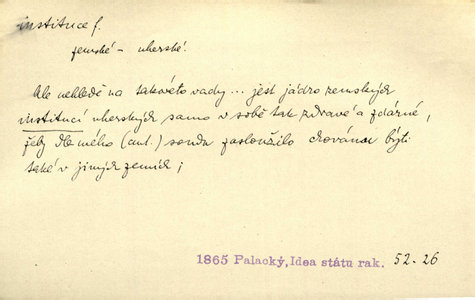 instituce f.
zemské – uherské.
Ale nehledě na takovéto vady... jest jádro zemských
institucí uherských samo v sobě tak zdravé a zdárné,
žeby dle mého (aut.) soudu zasloužilo chovánu býti
také v jiných zemích;
1865 Palacký, Idea státu rak. 52. 26